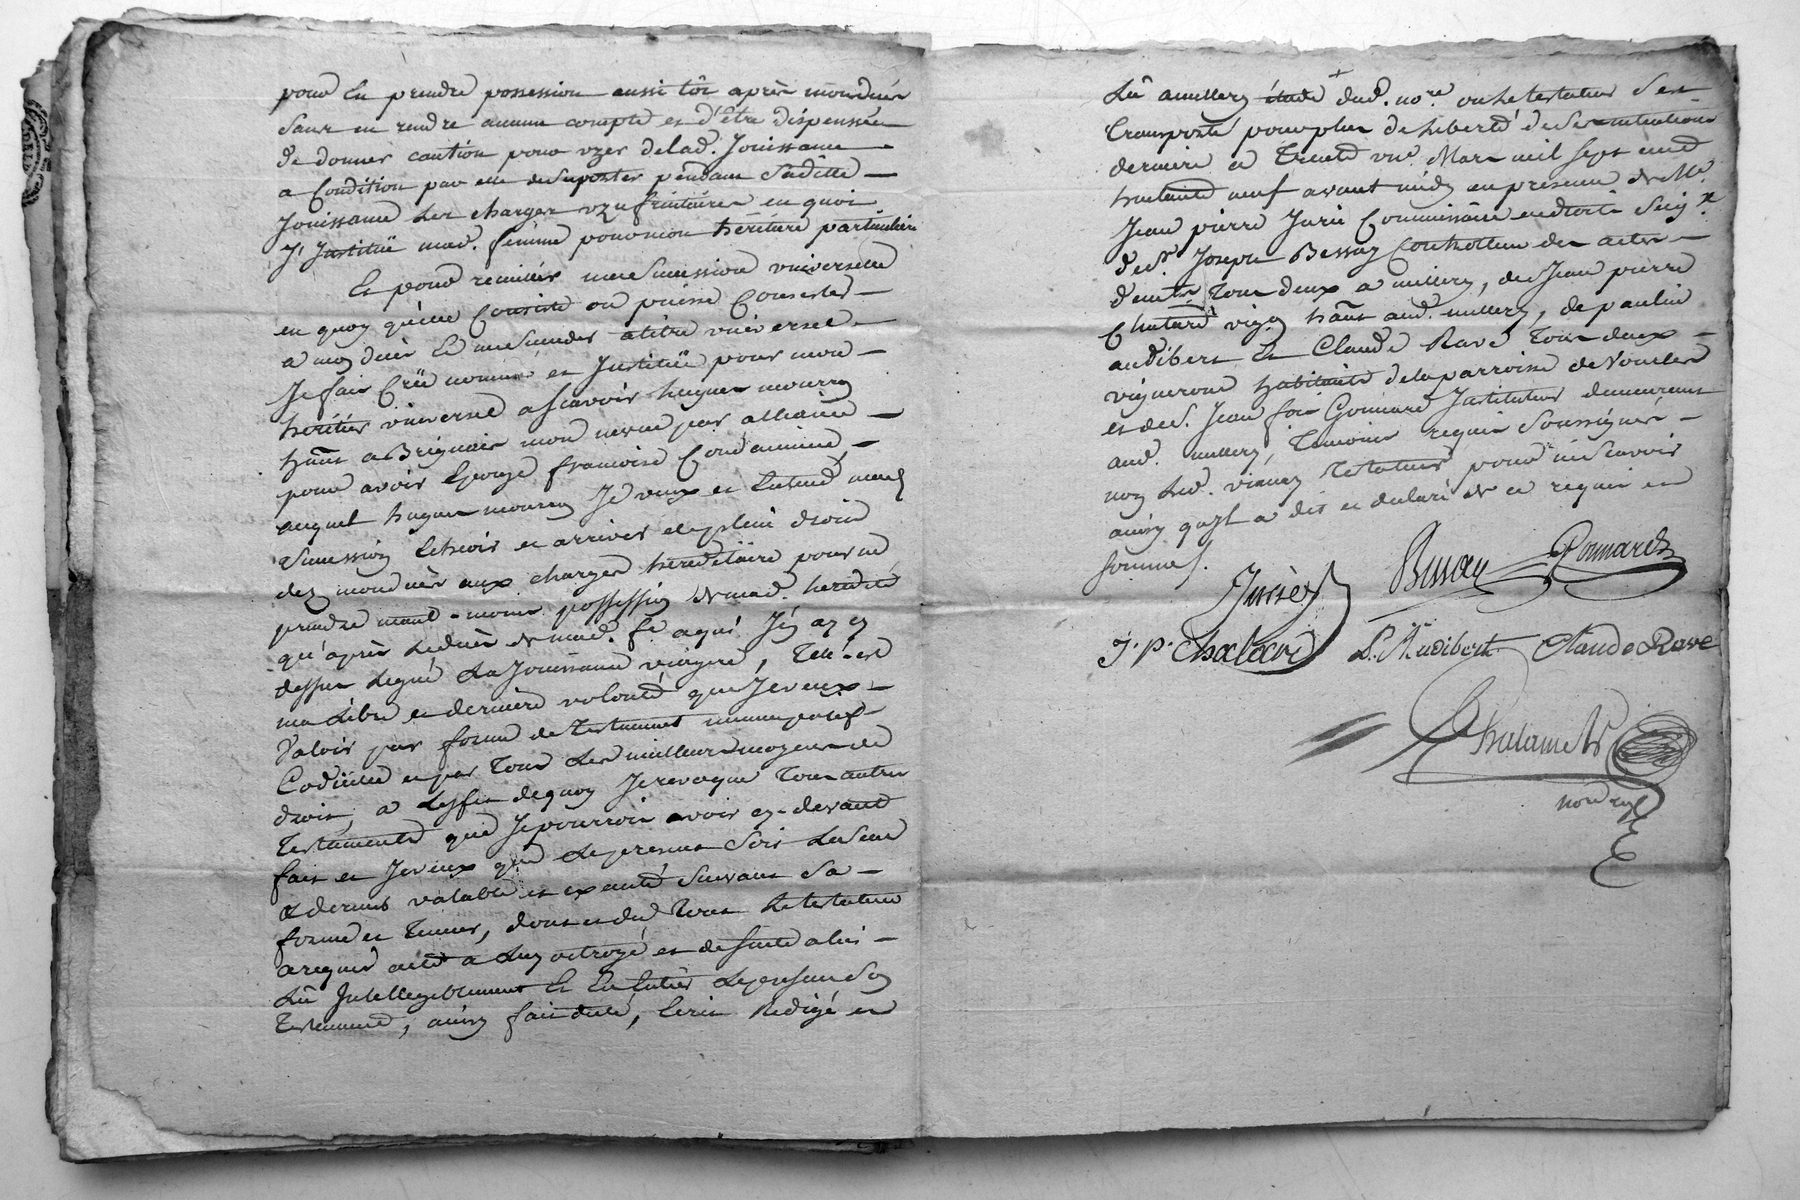 pour en prendre possession aussi tôt après mon decés
sans en rendre aucun compte et d'être dispensée
de donner caution pour uzer de lad. Jouissance
a Condition par elle de suporter pendant Saditte
Jouissance les charges uzufruitaires en quoi
J'Jnstitüe mad. femme pour mon héritière particulière
Et pour remier ma Sucession universelle
en quoy qu'elle Consiste ou puisse Consister
a mon decès Et me succeder a titre universel
Je fais Crée nomme et Jnstitüe pour mon
héritier universel a scavoir hugues mourron
hant a Brignais mon neveu par alliance
pour avoir Epouzé francoise Condamine,
auquel hugues mourron Je veux et Entend ma
Sucession Echeoir et arriver de plein droit
dez mon decès aux charges héréditaire pour ne
prendre neant-moins possession de mad. heredité
qu'après le decès de mad. fe a qui J'en ay cy
dessus legué La Jouissance viagere, Telle est
ma Libre et derniere volonté que Je veux
Valoir par forme de Testament nuncupatif
Codicille et par Tous Les meilleurs moyens de
droit, a L'effet de quoy Je revoque Tous autres
Testaments que Je pourrois avoir cy-devant
fait et Je veux que Le present Soit Le Seul
& dernier valable et executé Suivant Sa
forme et Teneur, dont et du Tout Le testateur
a requis acte a Luy octroyé et de suite a lui
Lû Jntelligiblement Et En Entier Le present Son
Testament, ainsy fait dicté, Ecrit Redigé et
Lû a millery étude dud. no.re ou le testateur S'est
Transporté pour plus de Liberté de Ses intentions
derniere ce Trente un Mars mil sept cent
huitante neuf avant midy en presence de Me.
Jean pierre Jurie Commissaire en droits Seig.x
de Sr. Joseph Bessay Controlleur des actes
d'eux Tous deux a millery, de Jean pierre
Chatard vign hant aud. millery, de paulin
audibert Et Claude Rave Tous deux
vignerons habitants de la parroisse de Vourles
et de S. Jean fois Gonnard Jnstituteur demeurant
aud. millery, Temoins requis Soussignés
non Led. vianay Testateur pour ne Scavoir
ainsy qu'il a dit et declaré de ce requis et
sommé.
Bessay Gonnard
J. P. Chatard L. Audibert Claude Rave
Chalamel